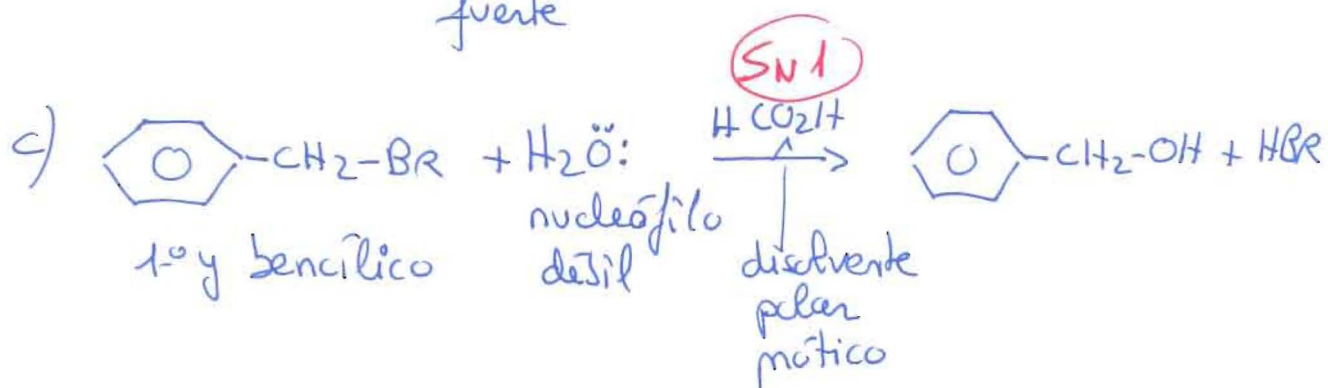 fuerte
SN1
c) -CH2-BR + H2Ö: HCO2H Δ -CH2-OH + HBR
1º y bencílico nucleófilo débil disolvente polar prótico